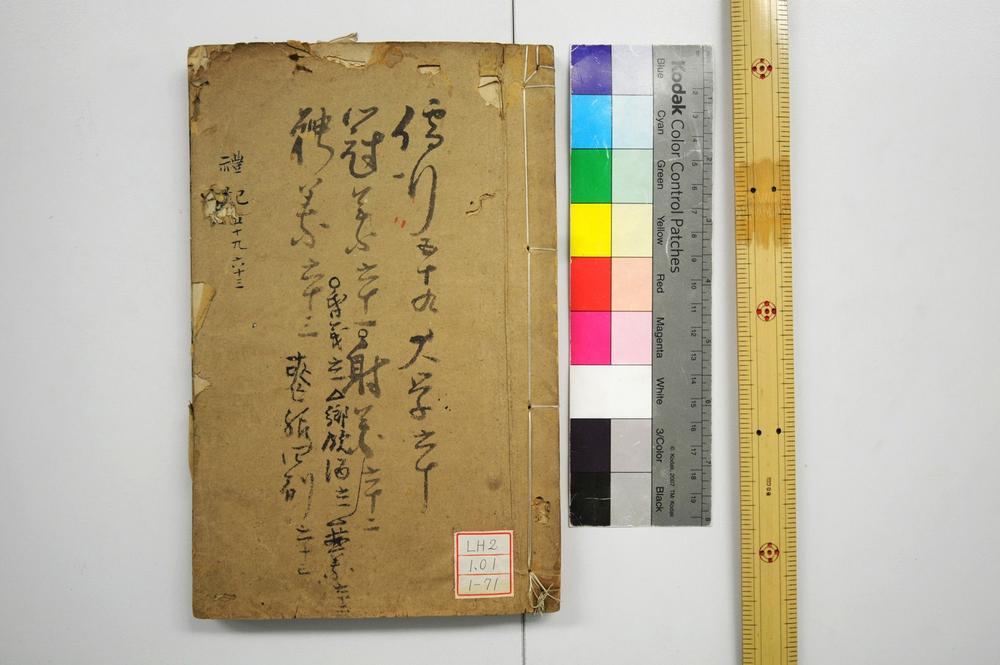 儒行五十九 大学六十
冠義六十一 射義六十二
昏義六十一 鄉飲酒義六十一 燕義六十二
聘義六十三 喪服四制六十三
禮記 五十九 六十三
LH2
1.01
1-71
Kodak Color Control Patches
Blue
Cyan
Green
Yellow
Red
Magenta
White
3/Color
Black
© Kodak, 2007 TM: Kodak